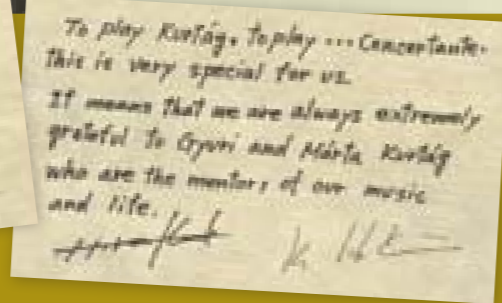 To play Kurtág. To play ... Concertante.
this is very special for us.
It means that we are always extremely
grateful to Gyuri and Márta Kurtág
who are the mentors of our music
and life.